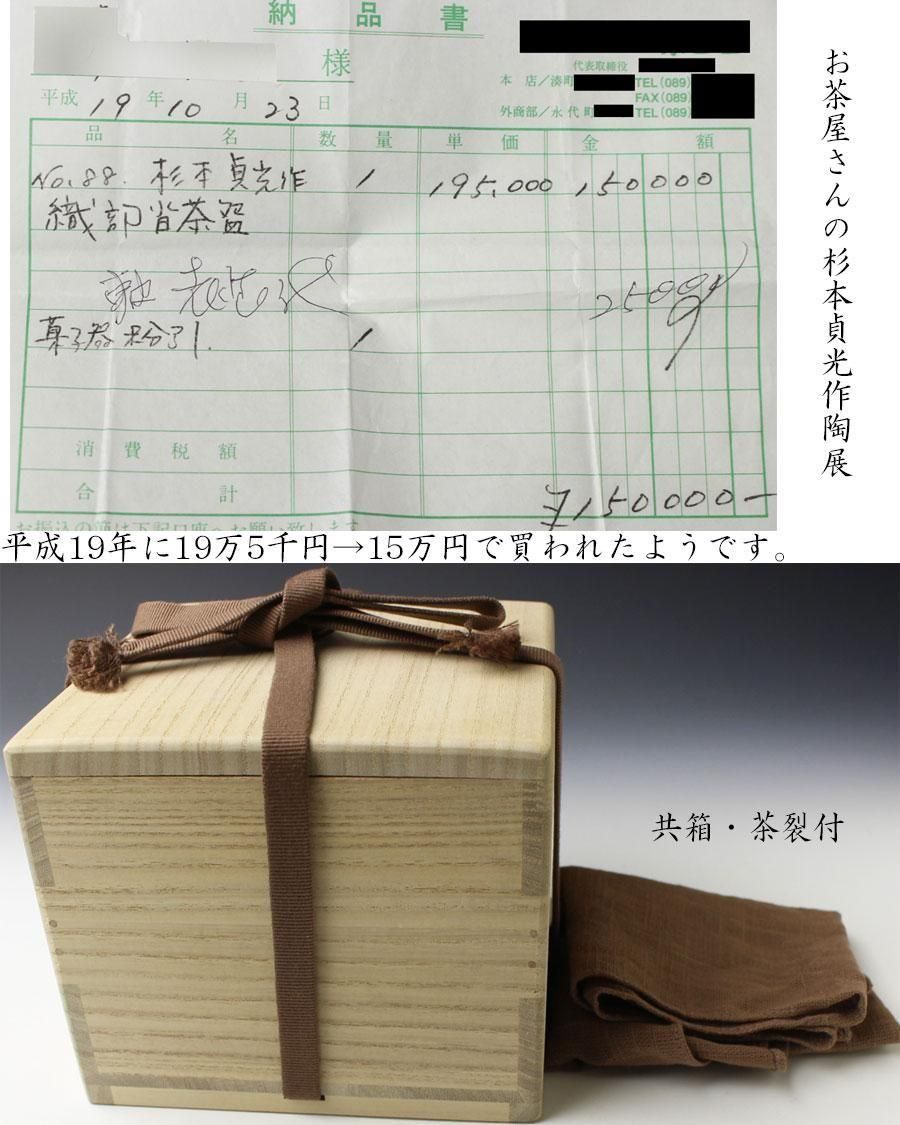 納品書
様
代表取締役
本 店／湊町 TEL(089)
FAX(089)
外商部／永代町 TEL(089)
平成 19 年 10 月 23 日
品 名 数 量 単 価 金 額
No.88. 杉本貞光作 1 195,000 150000
織部沓茶盌
菓子器 1
消費税額
合計 ¥150000-
お振込の節は下記口座へお願い致します
お茶屋さんの杉本貞光作陶展
平成19年に19万5千円→15万円で買われたようです。
共箱・茶裂付